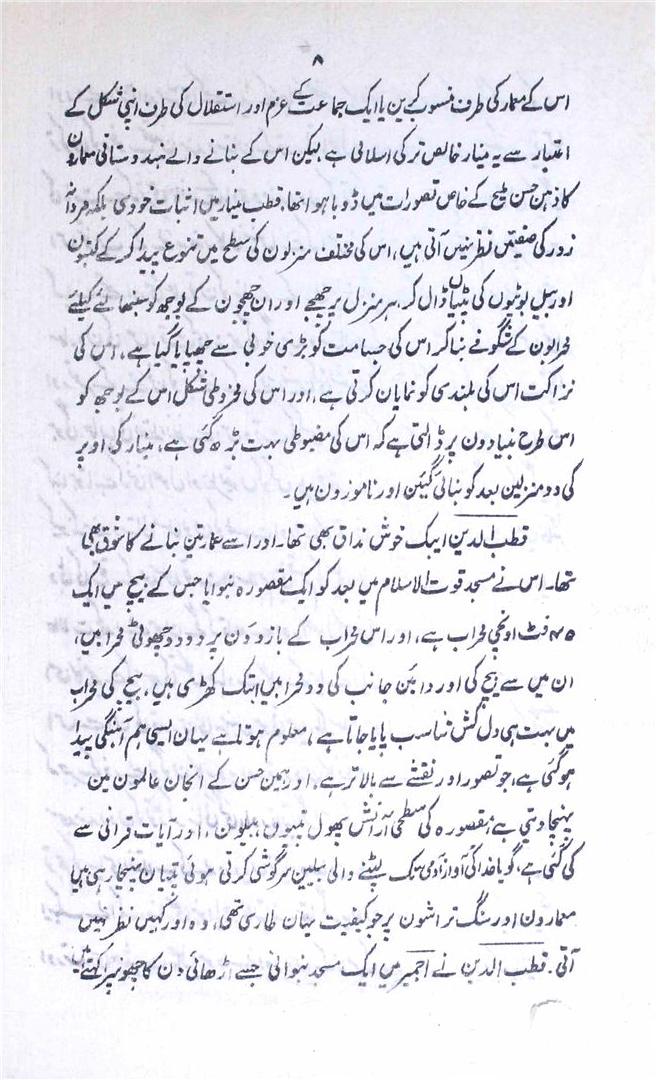 ۸
اس کے معمار کی طرف منسوب کیجے ین یا ایک جماعت کے عزم اور استقلال کی طرف اپنی شکل کے
اعتبار سے یہ مینار خالص ترکی اسلامی ہے لیکن اس کے بنانے والے ہندوستانی معمارون
کا ذہن حسن ملیح کے خاص تصورات میں ڈوبا ہوا تھا، قطب مینار میں اثبات خودی بلکہ مردانہ
زور کی صفتیں نظر نہیں آتی ہیں، اس کی مختلف منزلون کی سطح میں تنوع پیدا کر کے کتبون
اور بیل بوٹیوں کی پٹیاں ڈال کر، ہر منزل پر چھجے اور ان چھجون کے بوجھ کو سنبھالنے کیلئے
محرابون کے شگوفے بنا کر اس کی جسامت کو بڑی خوبی سے چھپایا گیا ہے، اس کی
نزاکت اس کی بلندی کو نمایان کرتی ہے، اور اس کی مخروطی شکل اس کے بوجھ کو
اس طرح بنیادون پر ڈالتی ہے کہ اس کی مضبوطی بہت بڑھ گئی ہے، مینار کی اوپر
کی دو منزلین بعد کو بنائی گیئن اور ناموزون ہیں۔
قطب الدین ایبک خوش مذاق بھی تھا۔ اور اسے عمارتین بنانے کا شوق بھی
تھا۔ اس نے مسجد قوت الاسلام میں بعد کو ایک مقصورہ بنوایا جس کے بیچ میں ایک
۴۵ فٹ اونچی محراب ہے، اور اس محراب کے بازوؤن پر دو دو چھوٹی محرابیں،
ان میں سے بیچ کی اور دائین جانب کی دو محرابیں ابتک کھڑی ہیں، بیچ کی محراب
میں بہت ہی دل کش تناسب پایا جاتا ہے، معلوم ہوتا ہے یہان ایسی ہم آہنگی پیدا
ہو گئی ہے، جو تصور اور نقشے سے بالاتر ہے۔ اور ہمین حسن کے انجان عالمون مین
پہنچا دیتی ہے، مقصورہ کی سطحی آرائش پھول پتیوں، بیلون، اور آیات قرآنی سے
کی گئی ہے، گویا خدا کی آواز آدمی تک لپٹنے والی بیلین سرگوشی کرتی ہوئی پتیان پہنچا رہی ہیں
معمارون اور سنگ تراشون پر جو کیفیت یہان طاری تھی، وہ اور کہیں نظر نہیں
آتی۔ قطب الدین نے اجمیر میں ایک مسجد بنوائی جسے اڑھائی دن کا جھونپڑا کہتے ہیں